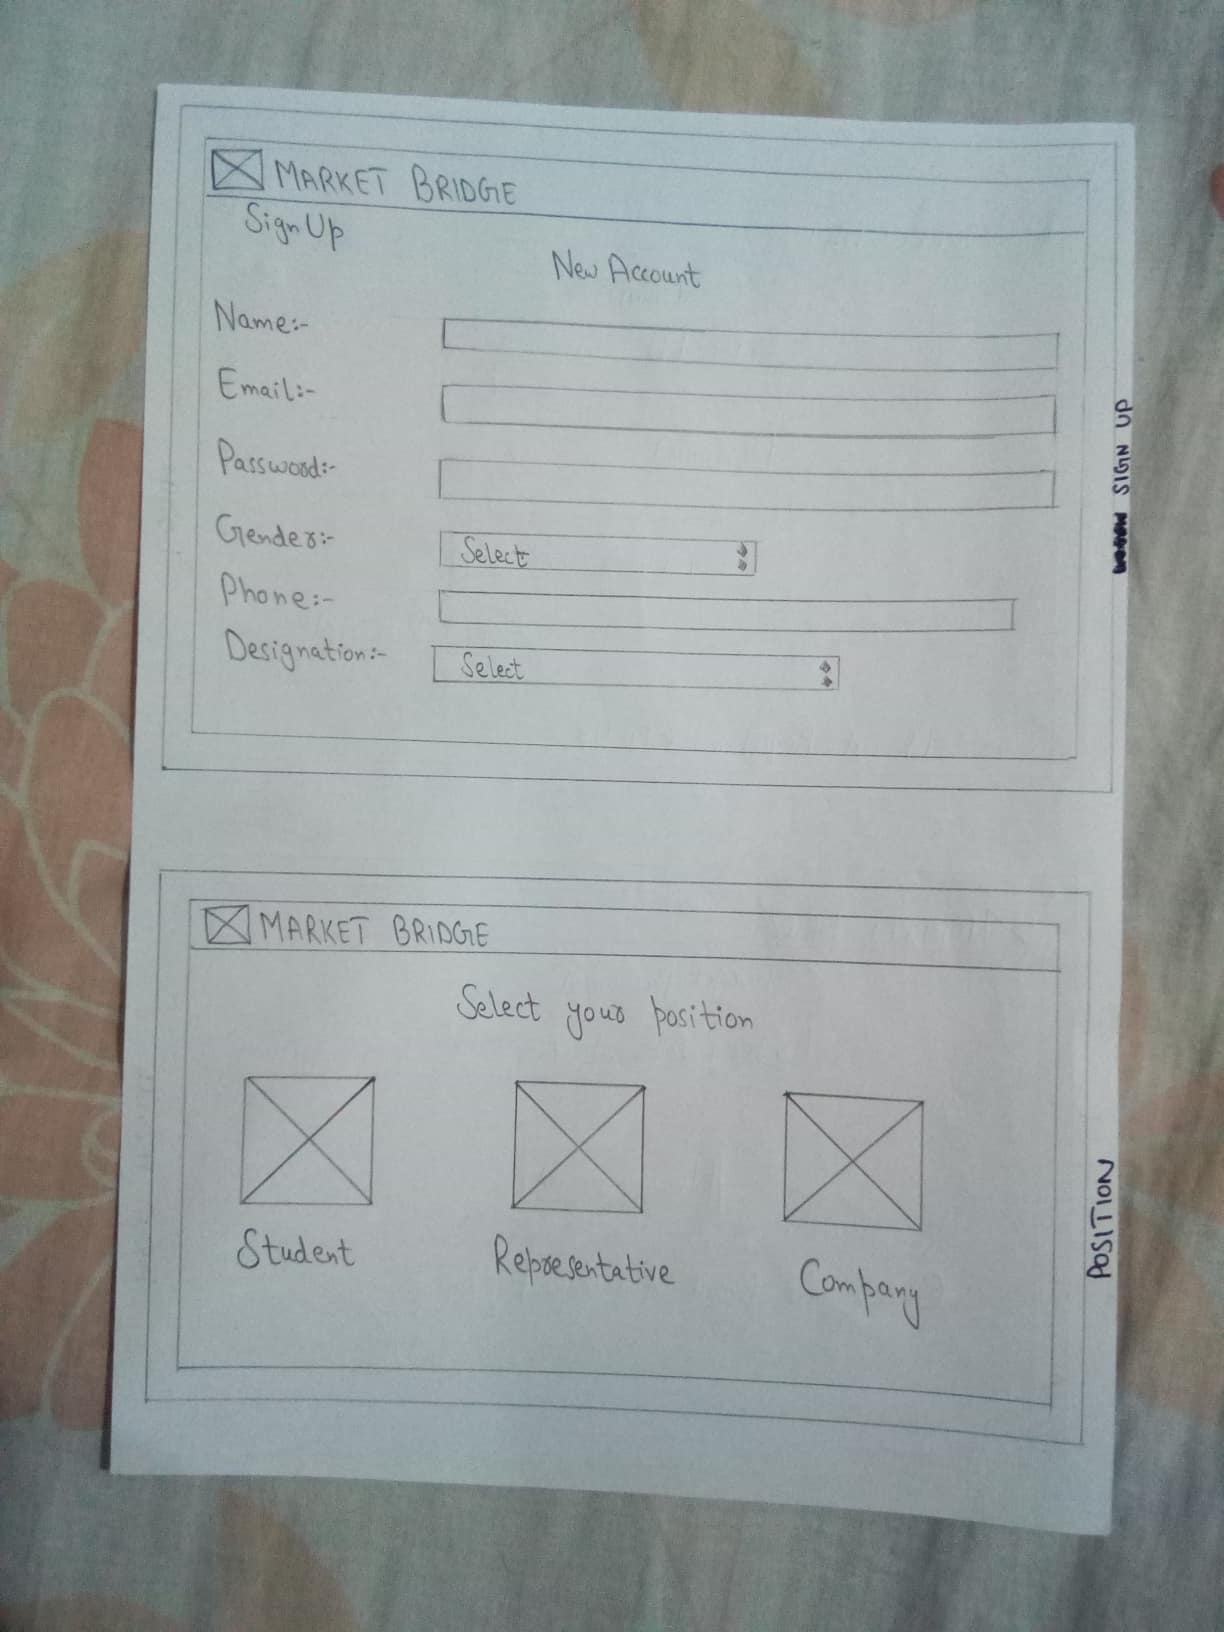 MARKET BRIDGE
Sign Up
New Account
Name:-
Email:-
Password:-
Gender:-
Select
Phone:-
Designation:-
Select
SIGN UP
MARKET BRIDGE
Select your position
Student
Representative
Company
POSITION